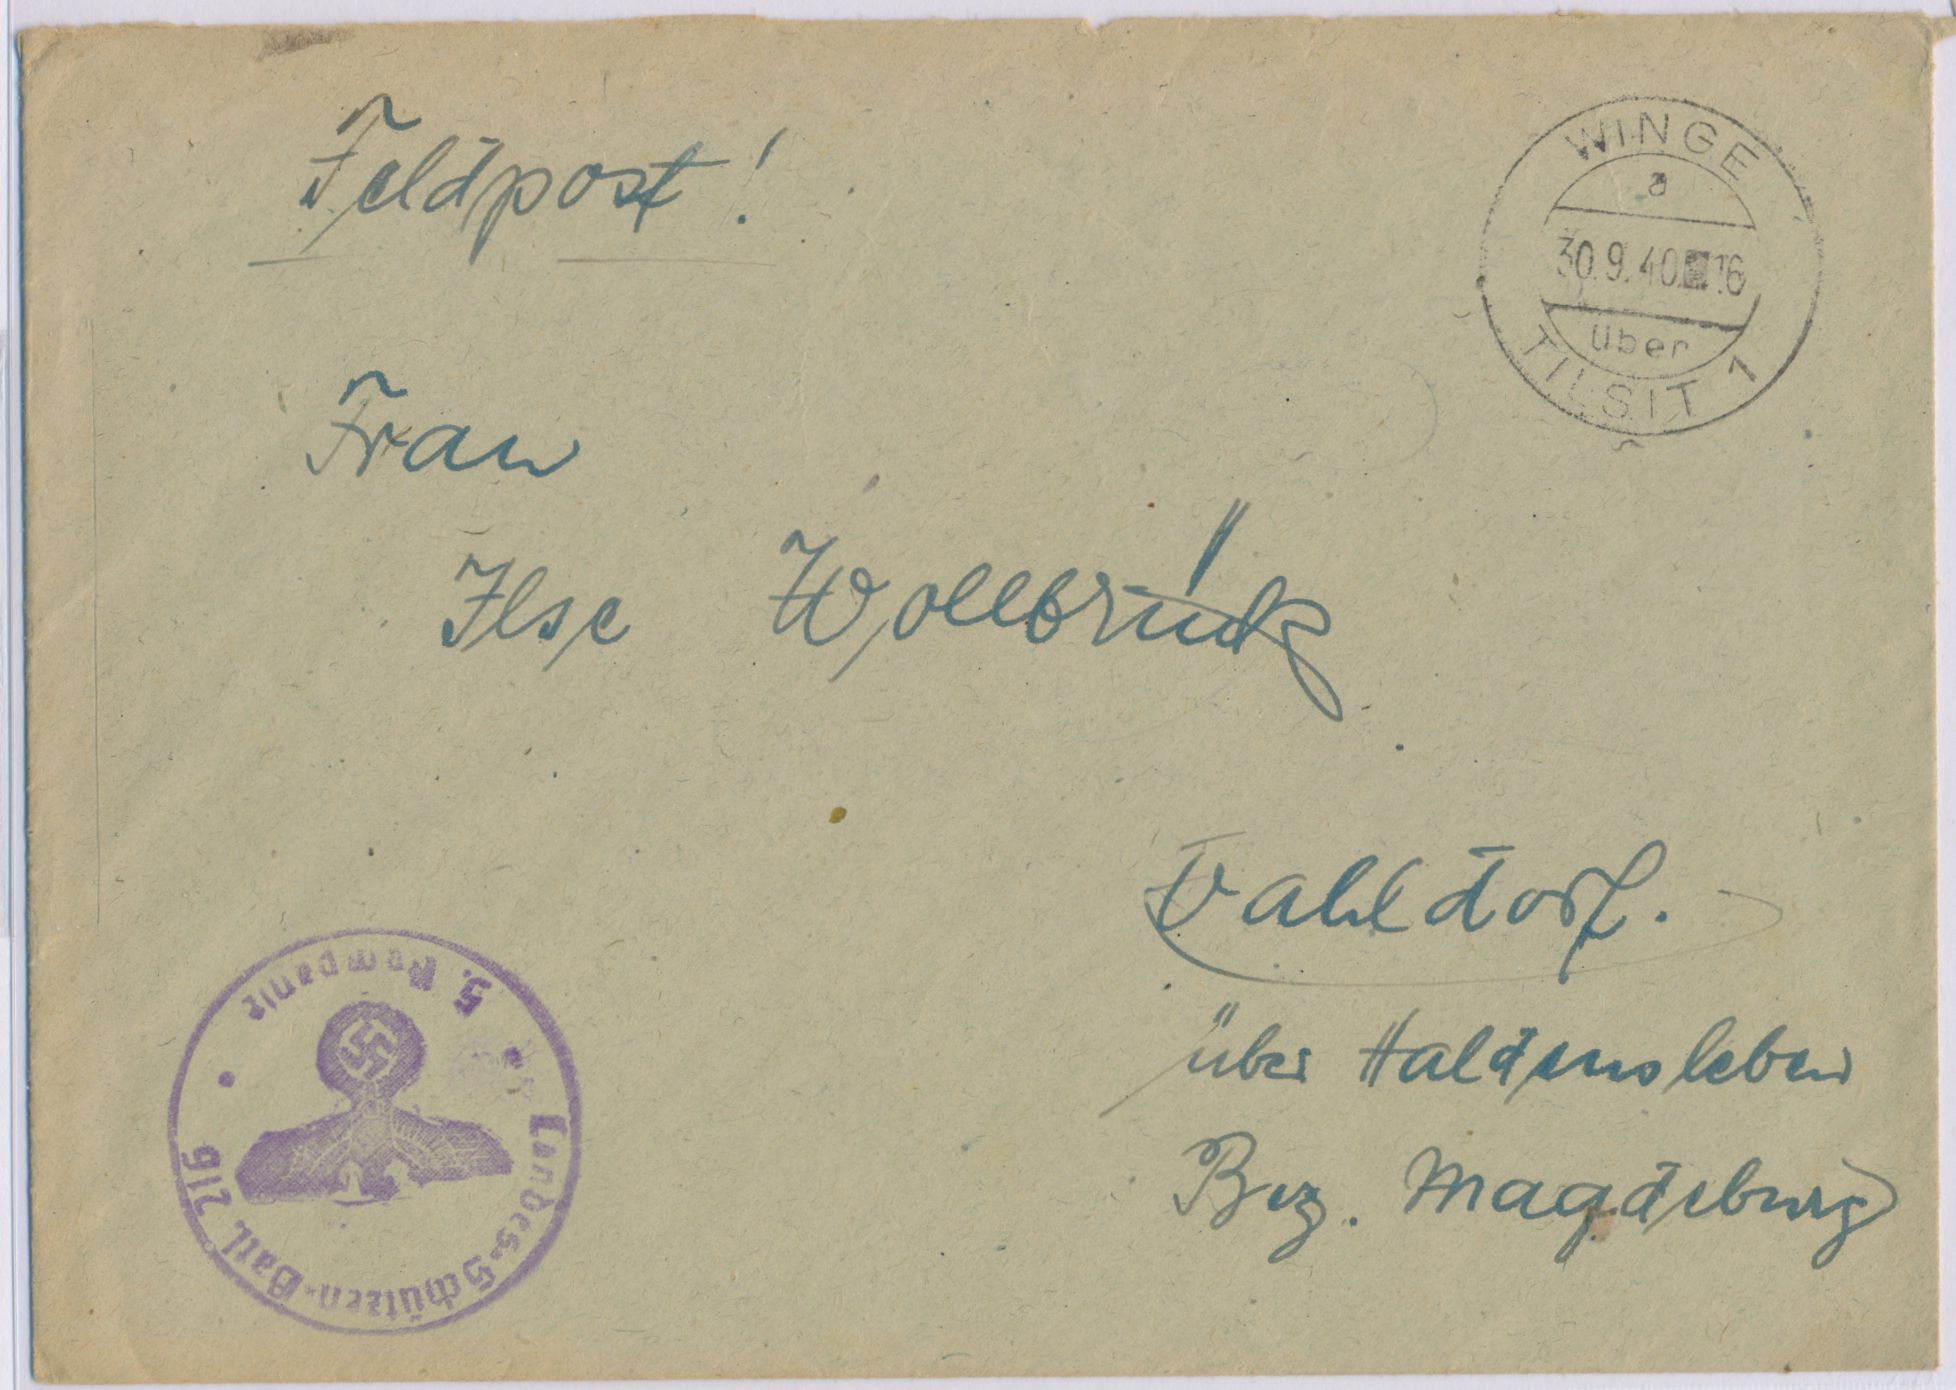 Feldpost!
WINGE
a
30.9.40. 16
über
TILSIT 1
Frau
Ilse Wollbrück
Vahldorf.
über Haldensleben
Bez. Magdeburg
5. Kompanie
Landes-Schützen-Batl.